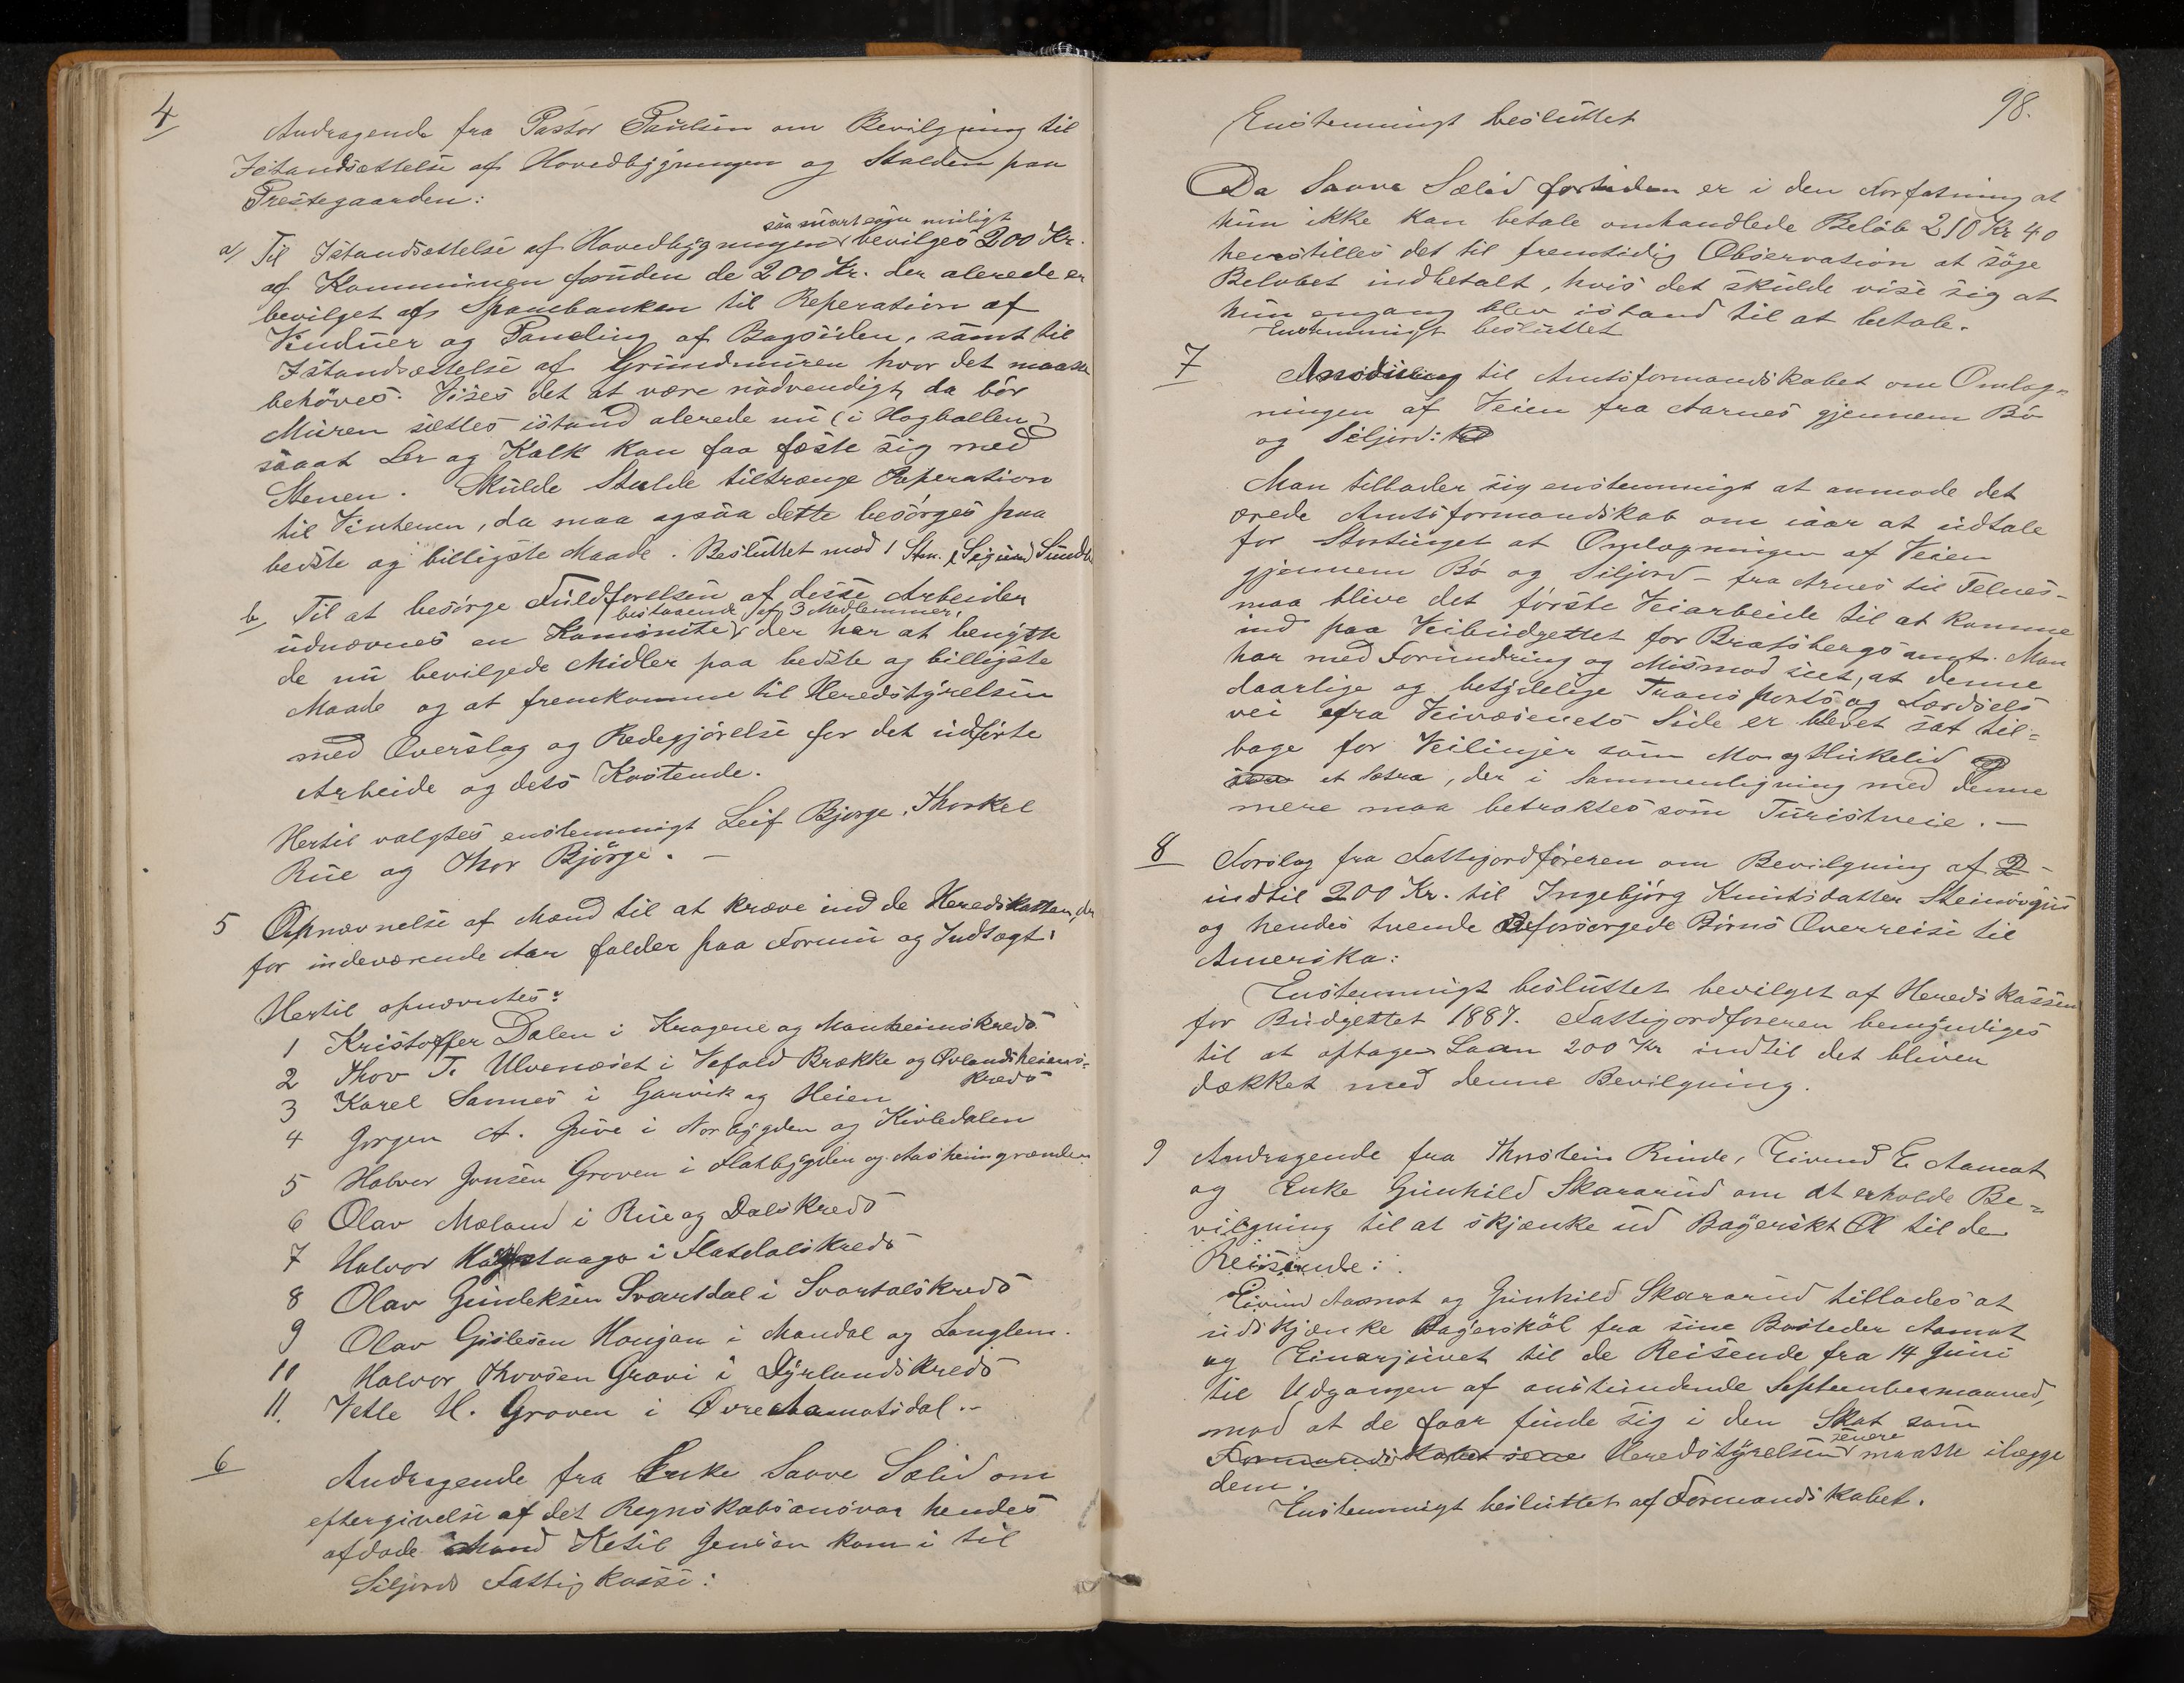 4
Andragende fra Pastor Paulsen om Bevilgning til
Istandsættelse af Hovedbygningen og Stalden paa
Prestegaarden:
saa snart som muligt
a/ Til Istandsættelse af Hovedbygningen bevilges 200 Kr.
af Kommunen foruden de 200 Kr. der alerede er
bevilget af Sparebanken til Reperation af
Vinduer og Paneling af Bagsiden, samt til
Istandsættelse af Grundmuren hvor det maaske
behöves. Vises det at være nödvendigt, da bör
Muren sættes istand alerede nu (i Hogballen)
saaat Ler og Kalk kan faa fæste sig med
Stenen. Skulde Stalde tiltrænge Reperation
til Vinteren, da maa ogsaa dette besörges paa
bedste og billigste Maade. Besluttet mod 1 Stm. (Sigurd Sundb
b, Til at besörge Fuldförelsen af disse Arbeider
bestaaende af 3 Medlemmer,
udnævnes en Kommite der har at benytte
de nu bevilgede Midler paa bedste og billigste
Maade og at fremkomme til Heredstyrelsen
med Overslag og Redegjörelse for det udförte
Arbeide og dets Kostende.
Hertil valgtes enstemmigt Leif Bjorge, Thorkel
Rue og Thor Björge. —
5 Opnævnelse af Mænd til at kræve ind de Heredskatter, der
for indeværende Aar falder paa Formue og Indtægt:
Hertil opnævntes:
1 Kristoffer Dalen i Kragene og Manheimskreds
2 Thov T. Ulvenæset i Vefald Brække og Örlandsheiens-
kreds
3 Karel Sannes i Garvik og Heien
4 Jorgen A. Juve i Norbygden og Kivledalen
5 Halvor Jonsen Groven i Flatbygden og Aasheimgrænden
6 Olav Mæland i Rue og Dalskreds
7 Halvor i Flatdalskreds
8 Olav Gundeksen Svartdal i Svartdalskreds
9 Olav Gislesen Haugan i Mandal og Langlem.
10 Halvor Thovsen Gravi i Dyrlandskreds
11. Vetle H. Groven i Övre Aamotsdal.-
6
Andragende fra Enke Saave Sælid om
eftergivelse af det Regnskabsansvar hendes
afdøde Mand Ketil Jensen kom i til
Siljords Fattigkasse:
98.
Enstemmigt besluttet
Da Saave Sælid fortiden er i den Forfatning at
hun ikke kan betale omhandlede Belöb 210 Kr 40
henstilles det til fremtidig Observation at söge
Belobet indbetalt, hvis det skulde vise sig at
hun engang blev istand til at betale.
Enstemmigt besluttet
7
Ansöning til Amtsformandskabet om Omlæg-
ningen af Veien fra Aarnes gjennem Bö
og Siljord:
Man tillader sig enstemmigt at anmode det
ærede Amtsformandskab om iaar at udtale
for Stortinget at Omlægningen af Veien
gjennem Bö og Siljord - fra Arnes til Telnes -
maa blive det förste Veiarbeide til at komme
ind paa Veibudgettet for Bratsbergs amt. Man
har med Forundring og Mismod seet, at denne
daarlige og betydelige Transports og Færdsels
vei fra Veivæsenets Side er blevet sat til-
bage for Veilinjer som Mo og Hukelid
et Setra, der i Sammenligning med denne
mere maa betraktes som Turistveie. —
8 Forslag fra Fattigordföreren om Bevilgning af
indtil 200 Kr. til Ingebjörg Knutsdatter
og hendes tvende uforsörgede Börns Overreise til
Amerika:
Enstemmigt besluttet bevilget af Heredskassen
for Budgettet 1887. Fattigordföreren bemyndiges
til at optage Laan 200 Kr indtil det bliver
dækket med denne Bevilgning.
9 Andragende fra Thorstein Rinde, Eivind E Aamot
og Enke Gunhild Skararud om at erholde Be-
vilgning til at skjænke ud Bayerskt Öl til de
Reisende:
Eivind Aamot og Gunhild Skararud tillades at
udskjænke Bayerskøl fra sine Bosteder Aamot
og Einarjuvet til de Reisende fra 14 Juni
til Udgangen af anstundende Septembermaaned,
mod at de faar finde sig i den Skat som
senere
Formandskabet sene Heredstyrelsen maatte ilægge
dem.
Enstemmigt besluttet af Formandskabet.